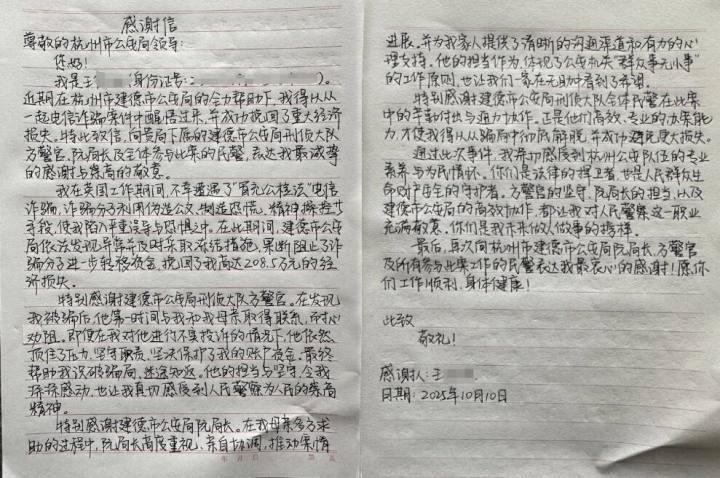 感谢信
尊敬的杭州市公安局领导:
您好!
我是王 (身份证号: )。
近期在杭州市建德市公安局的全力帮助下,我得以从
一起电信诈骗案件中醒悟过来,并成功挽回了重大经济
损失。特此致信,向贵局下属的建德市公安局刑侦大队
方警官、阮局长及全体参与此案的民警,表达我最诚挚
的感谢与崇高的敬意。
我在英国工作期间,不幸遭遇了"冒充公检法"电信
诈骗,诈骗分子利用伪造公文、制造恐慌、精神操控等
手段,使我陷入严重误导与恐惧之中。在此期间,建德市公安
局依法发现异常并及时采取冻结措施,果断阻止了诈
骗分子进一步转移资金,挽回了我高达208.5万元的经
济损失。
特别感谢建德市公安局刑侦大队方警官。在发现
我被骗后,他第一时间与我和我母亲取得联系,耐心
劝阻。即便在我对他进行不实投诉的情况下,他依然
顶住了压力,坚守职责,坚决保护了我的账户资金,最终
帮助我识破骗局,迷途知返。他的担当与坚守,令我
深深感动,也让我真切感受到人民警察为人民的崇高
精神。
特别感谢建德市公安局阮局长。在我母亲多方求
助的过程中,阮局长高度重视、亲自协调,推动案情
进展。并为我家人提供了清晰的沟通渠道和有力的心
理支持。他的担当作为,体现了公安机关"群众事无小事"
的工作原则,也让我们一家在无助中看到了希望。
特别感谢建德市公安局刑侦大队全体民警在此案
中的辛勤付出与通力协作。正是他们高效、专业的办案能
力,才使我得以从骗局中彻底解脱,并成功避免更大损失。
通过此次事件,我深切感受到杭州公安队伍的专业
素养与为民情怀。你们是法律的捍卫者,也是人民群众生
命财产安全的守护者。方警官的坚守、阮局长的担当,以及
建德市公安局的高效协作,都让我对人民警察这一职业
充满敬意。你们是我未来做人做事的榜样。
最后,再次向杭州市建德市公安局阮局长、方警官
及所有参与此案工作的民警表达我最衷心的感谢!愿你
们工作顺利,身体健康!
此致
敬礼!
感谢人:王
日期:2025年10月10日